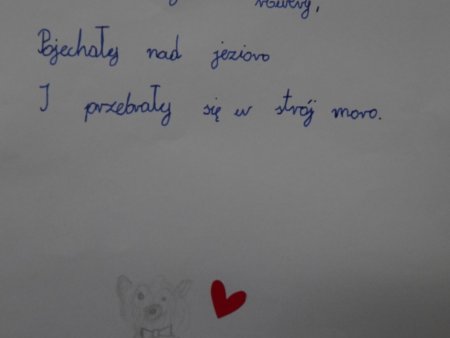 rowery,
Pojechały nad jezioro
I przebrały się w strój moro.